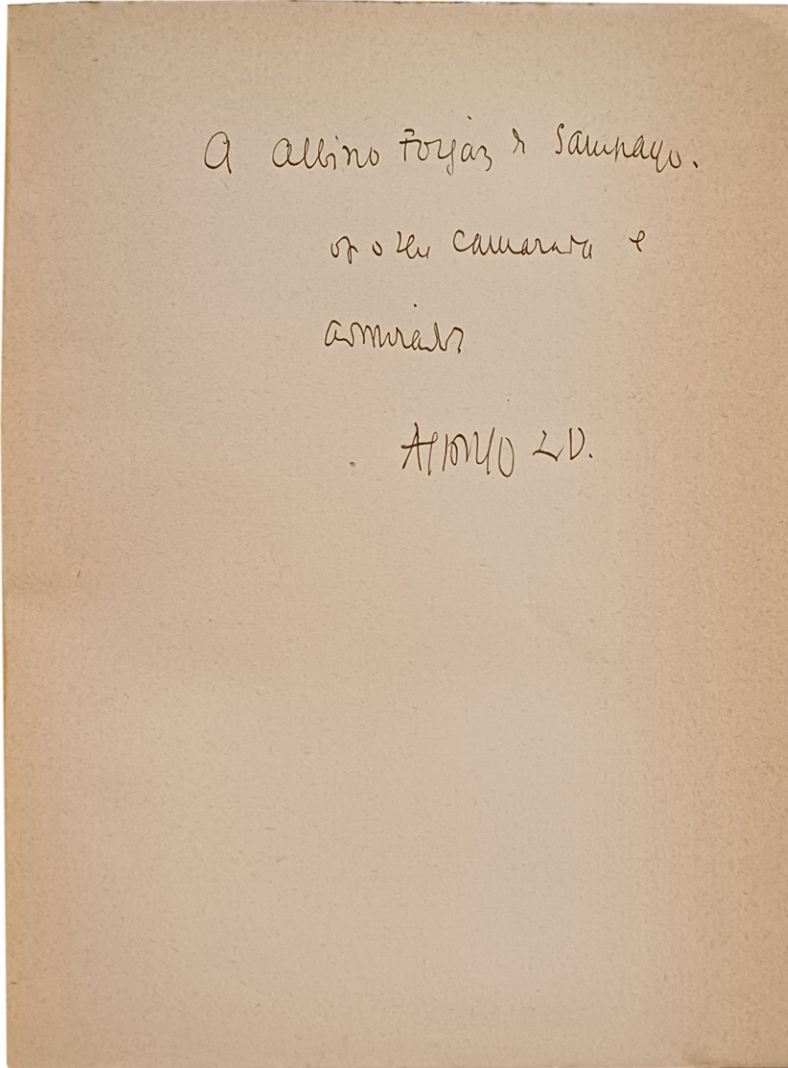 A Albino Forjaz de Sampayo.
of o seu camarada e
admirador
Affonso L. V.